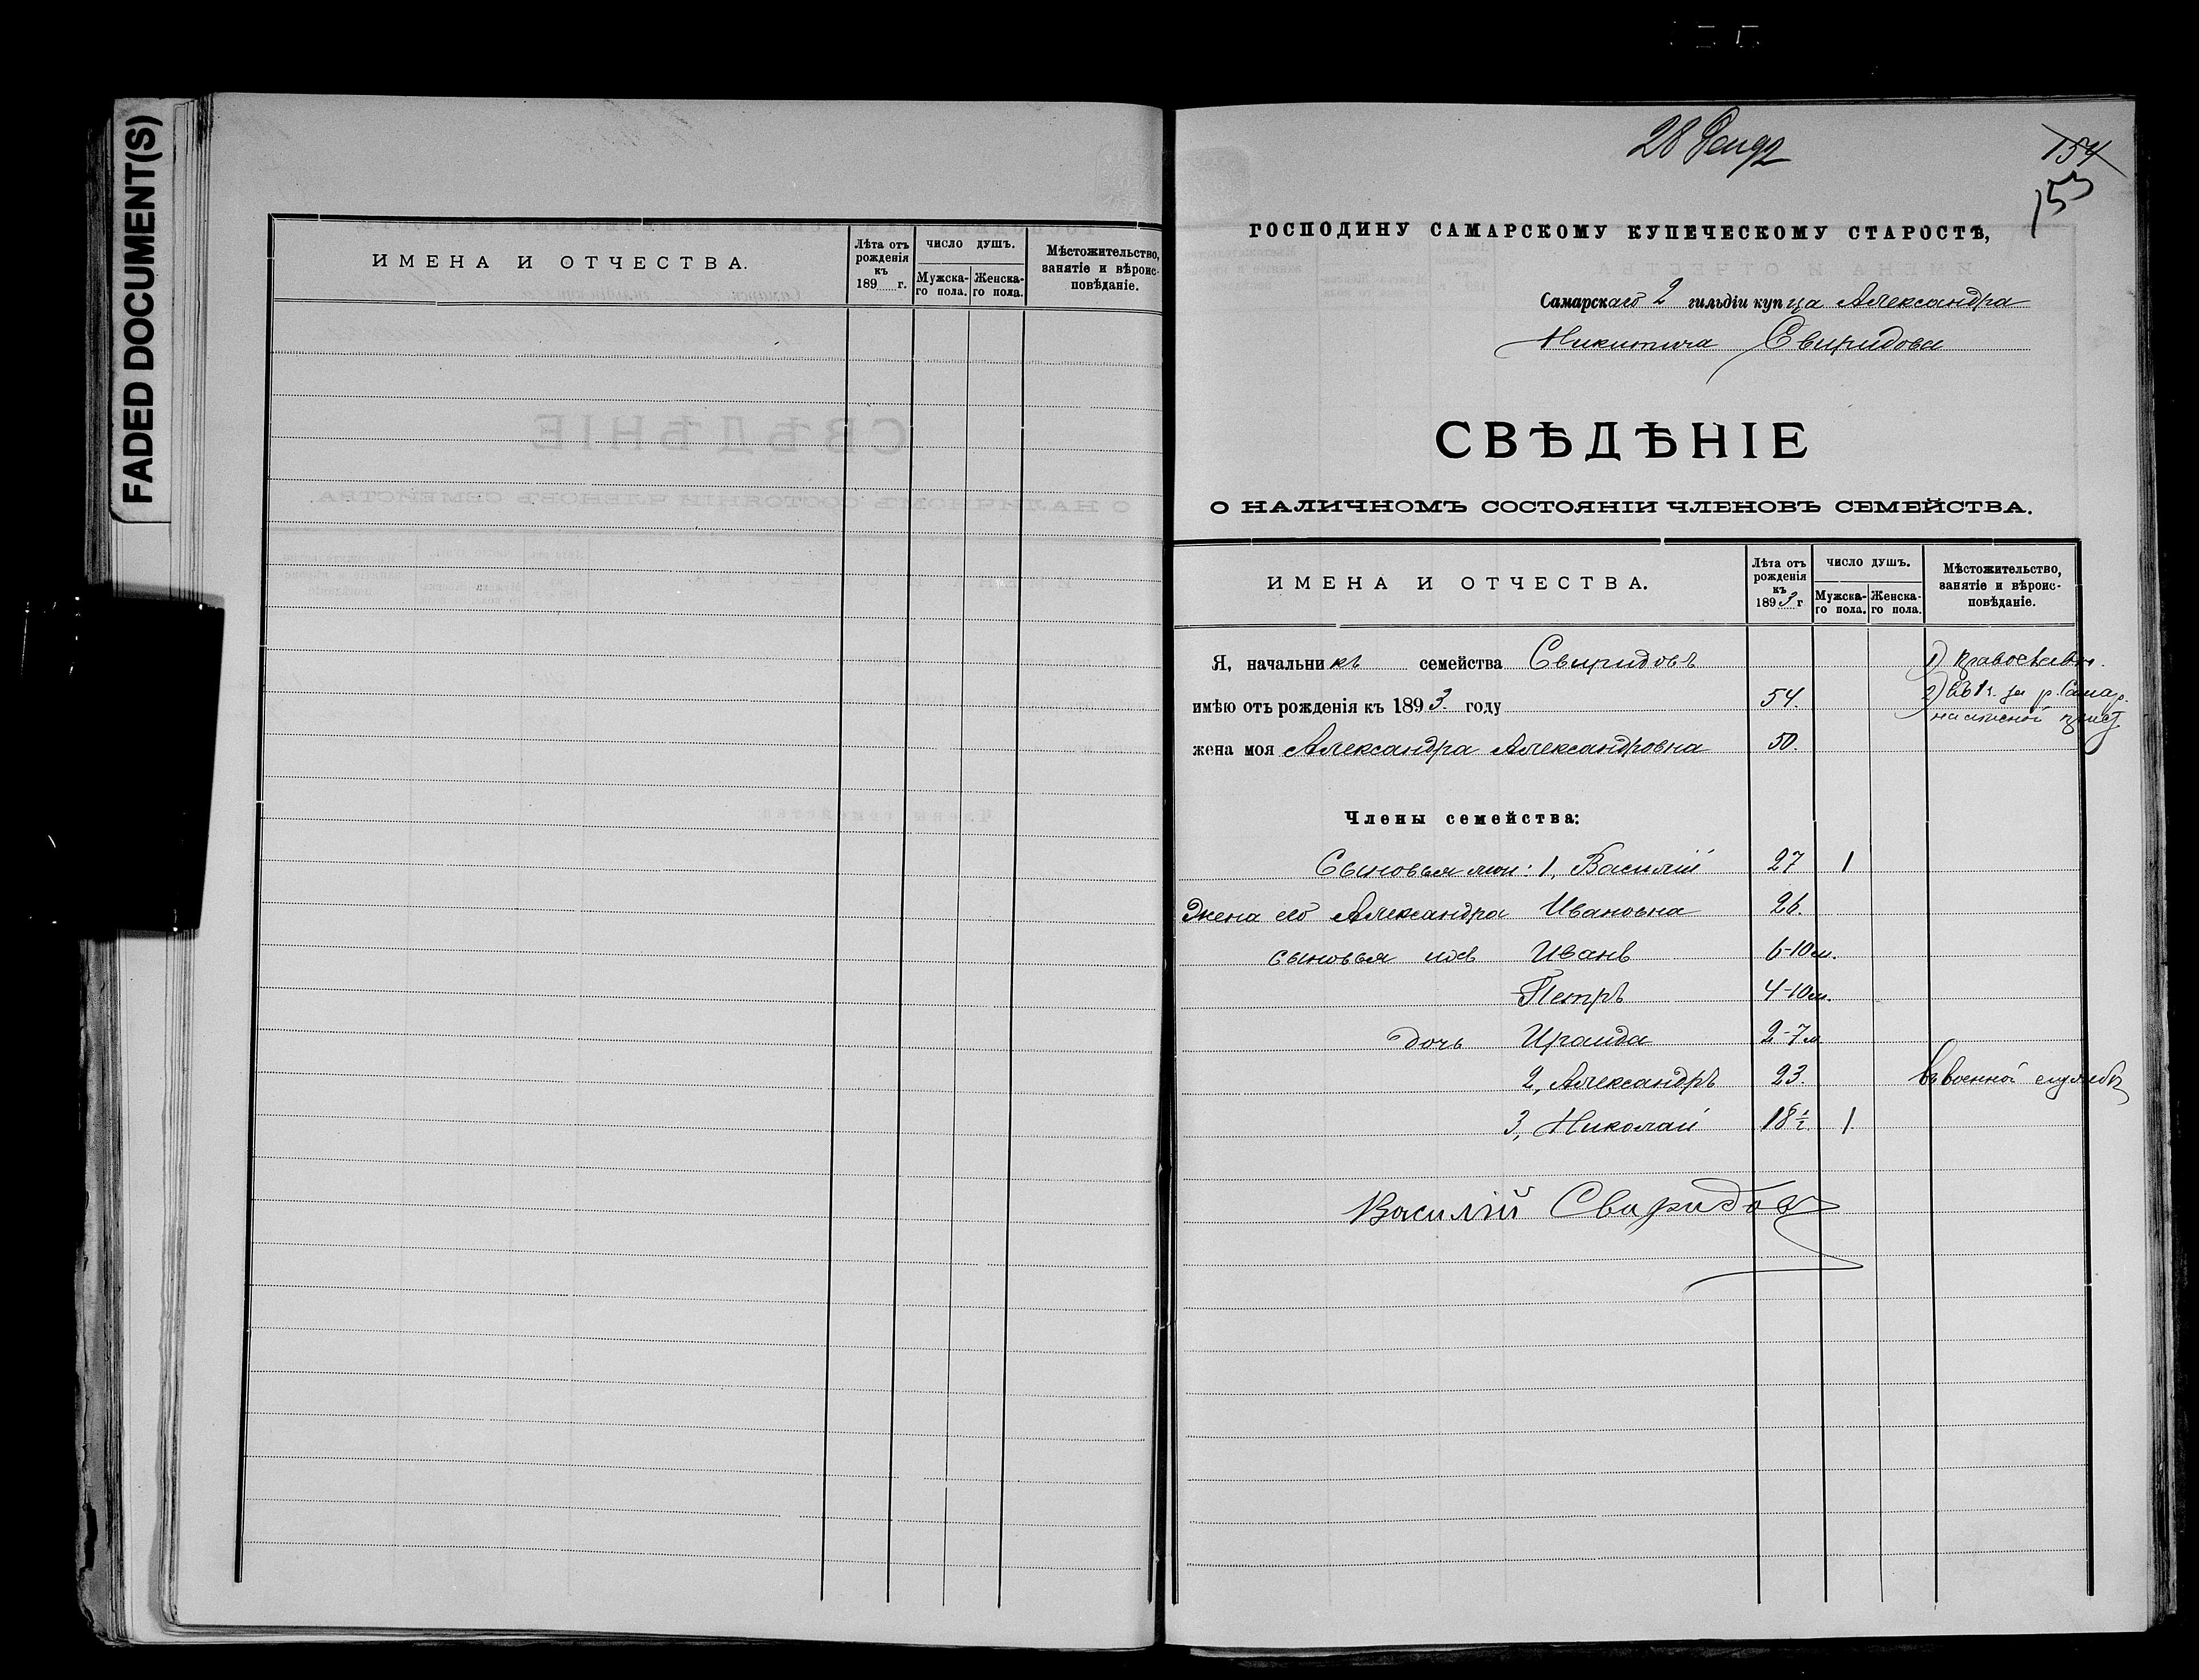 FADED DOCUMENT(S)
ИМЕНА И ОТЧЕСТВА.
Лѣта отъ рожденія къ 189 г.
ЧИСЛО ДУШЪ.
Мужска-го пола.
Женска-го пола.
Мѣстожительство, занятіе и вѣроис-повѣданіе.
28
154
153
ГОСПОДИНУ САМАРСКОМУ КУПЕЧЕСКОМУ СТАРОСТѢ,
Самарскаго 2 гильдіи купца Александра
Никитича Свиридова
СВѢДѢНІЕ
О НАЛИЧНОМЪ СОСТОЯНІИ ЧЛЕНОВЪ СЕМЕЙСТВА.
ИМЕНА И ОТЧЕСТВА.
Лѣта отъ рожденія къ 1893 г
ЧИСЛО ДУШЪ.
Мужска-го пола.
Женска-го пола.
Мѣстожительство, занятіе и вѣроис-повѣданіе.
Я, начальникъ семейства Свиридовъ 1)
имѣю отъ рожденія къ 1893 году 54. 2) за р. Самар.
жена моя Александра Александровна 50.
Члены семейства:
Сыновья мои: 1, Василій 27 1
Жена его Александра Ивановна 26.
сыновья Иванъ 6-10 м.
Петръ 4-10 м.
дочь Ираида 2-7 м
2, Александръ 23. въ военной службѣ
3, Николай 18½ 1
Василій Свиридов